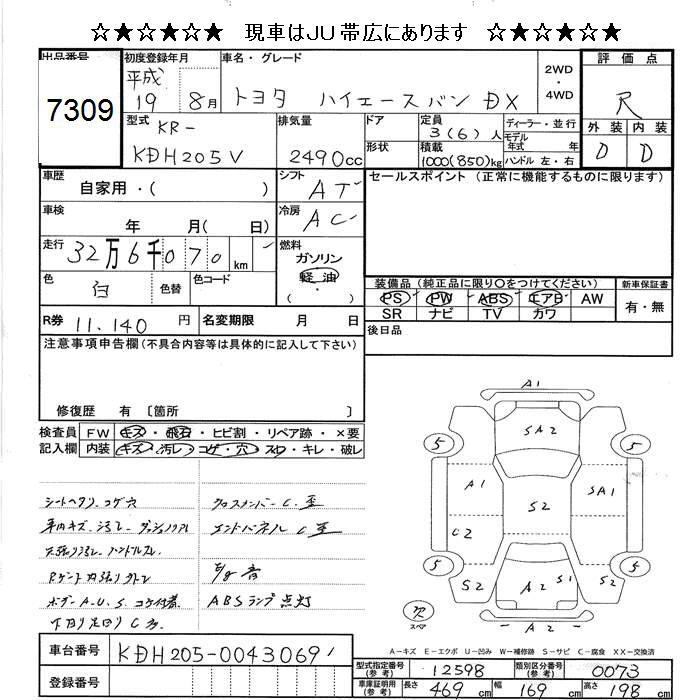 ☆★☆★☆★ 現車はJU帯広にあります ☆★☆★☆★
出品番号 初度登録年月 車名・グレード 評価点
7309
平成 19 8月
トヨタ ハイエースバン DX
2WD・4WD
R
外装 内装
D D
型式 KR-
KDH205V
排気量 2490cc
ドア
形状
定員 3(6)人
積載 1000(850)kg
ディーラー・並行
モデル年式 年式
ハンドル 左・右
車歴 自家用・( )
シフト AT
セールスポイント(正常に機能するものに限ります)
車検 年 月( 日)
冷房 AC
走行 32万6千070km
燃料 ガソリン
軽油
( ・ )
色 白 色替 色コード
装備品(純正品に限り○をつけてください) 新車保証書
PS PW ABS エアB AW
SR ナビ TV カワ
有・無
R券 11,140円 名変期限 月 日
後日品
注意事項申告欄(不具合内容等は具体的に記入して下さい)
修復歴 有 〔箇所 〕
検査員記入欄
FW キズ・飛石・ヒビ割・リペア跡・×要
内装 キズ・汚レ・コゲ・穴・スレ・キレ・破レ
シートヘタリ、コゲ穴
車内キズ、汚レ
天張り汚レ、ハンドルスレ
ボデーA.U.S.コケ付着
下回り足回りC多
クロスメンバーC
エンドパネルC
ABSランプ点灯
A1
SA2
5 5
A1 SA1
S2
C2 2
5 5
S2 A2 S1 S2
A2
スペア
A-キズ E-エクボ U-凹み W-補修跡 S-サビ C-腐食 XX-交換済
車台番号 KDH205-0043069
登録番号
型式指定番号(参考) 12598 類別区分番号(参考) 0073
車庫証明用(参考) 長さ 469cm 幅 169cm 高さ 198cm